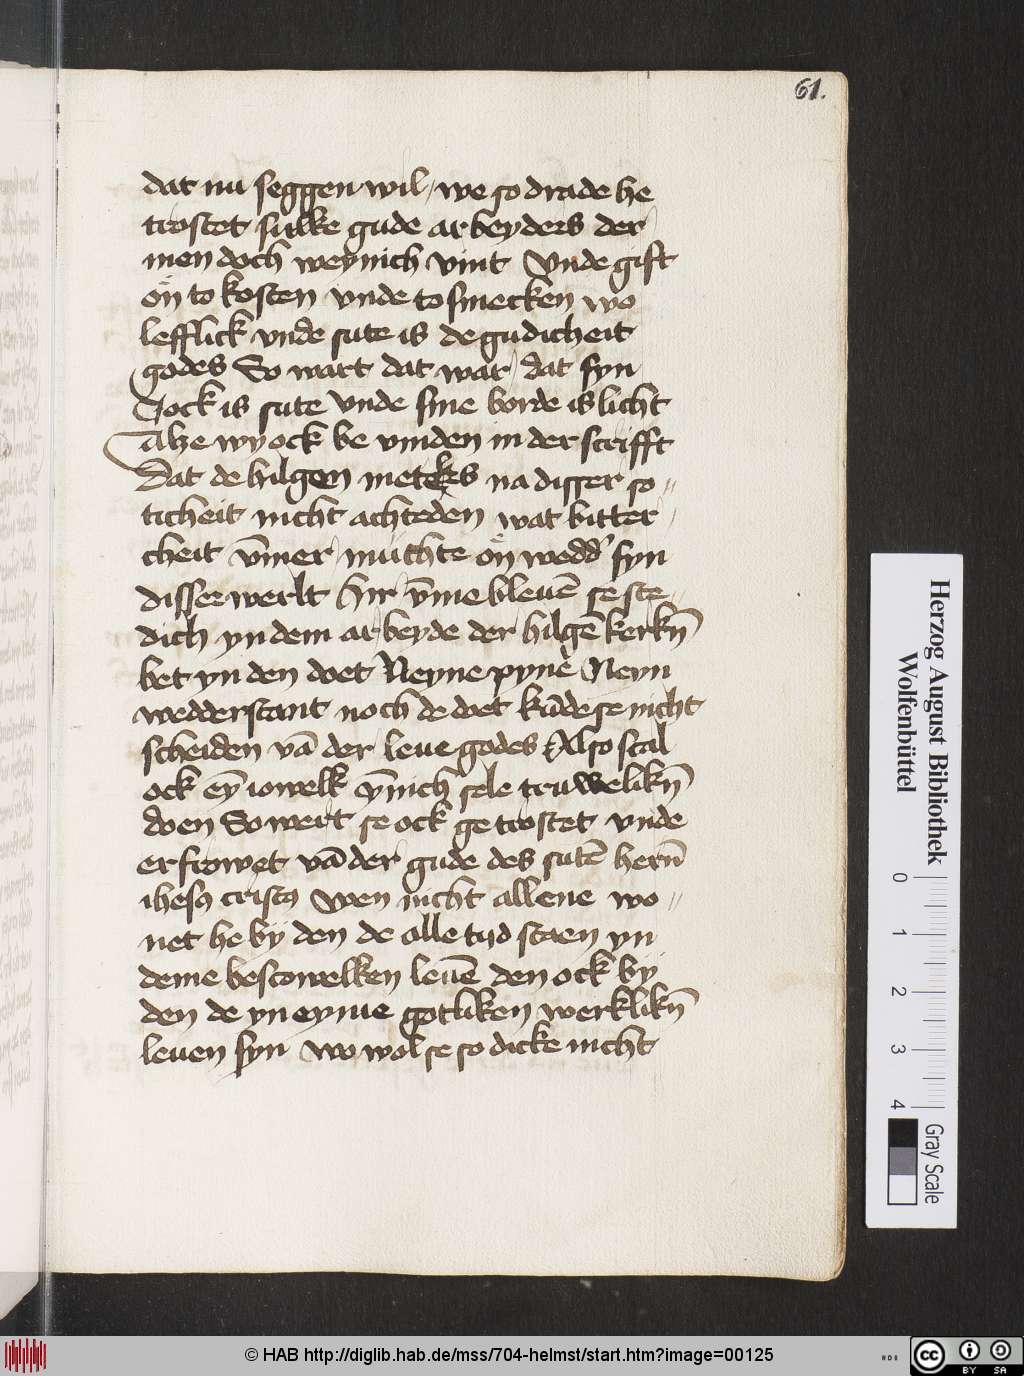 61.
dat nu seggen wil / we so drade he
trostet sulke gude arbeyders der
men doch weynich vint Vnde gift
ön to kosten vnde to smecken wo
lefflick vnde sute is de gudicheit
godes So wart dat war / dat syn
Jock is sute Vnde sine borde is licht
Alze wy ock be vinden in der scrifft
Dat de hilgen metekes na disser so//
ticheit nicht achteden wat bitter/
cheit v̄mer muchte ön wedd' syn
disser werlt Hir v̄me bleuē se ste/
dich yn dem arbeyde der hilgē kerkn̄
bet yn den doet Neyne pyne Neyn
wedderstant noch de doet kūde se nicht
scheiden vā der leue godes Also scal
ock eȳ iowelk ȳnich sele truwelikn̄
doen So wert se ock ge trostet vnde
erfrowet vā der gude des sutē hern̄
ihesꝯ cristꝯ Wen nicht allene wo//
net he by den de alle tijd staen yn
deme bescowelken leuē den ock by
den de yn eyme gotliken werklikn̄
leuen syn wo wol se so dicke nicht
Herzog August Bibliothek
Wolfenbüttel
0 1 2 3 4
Gray Scale
© HAB http://diglib.hab.de/mss/704-helmst/start.htm?image=00125
cc BY SA